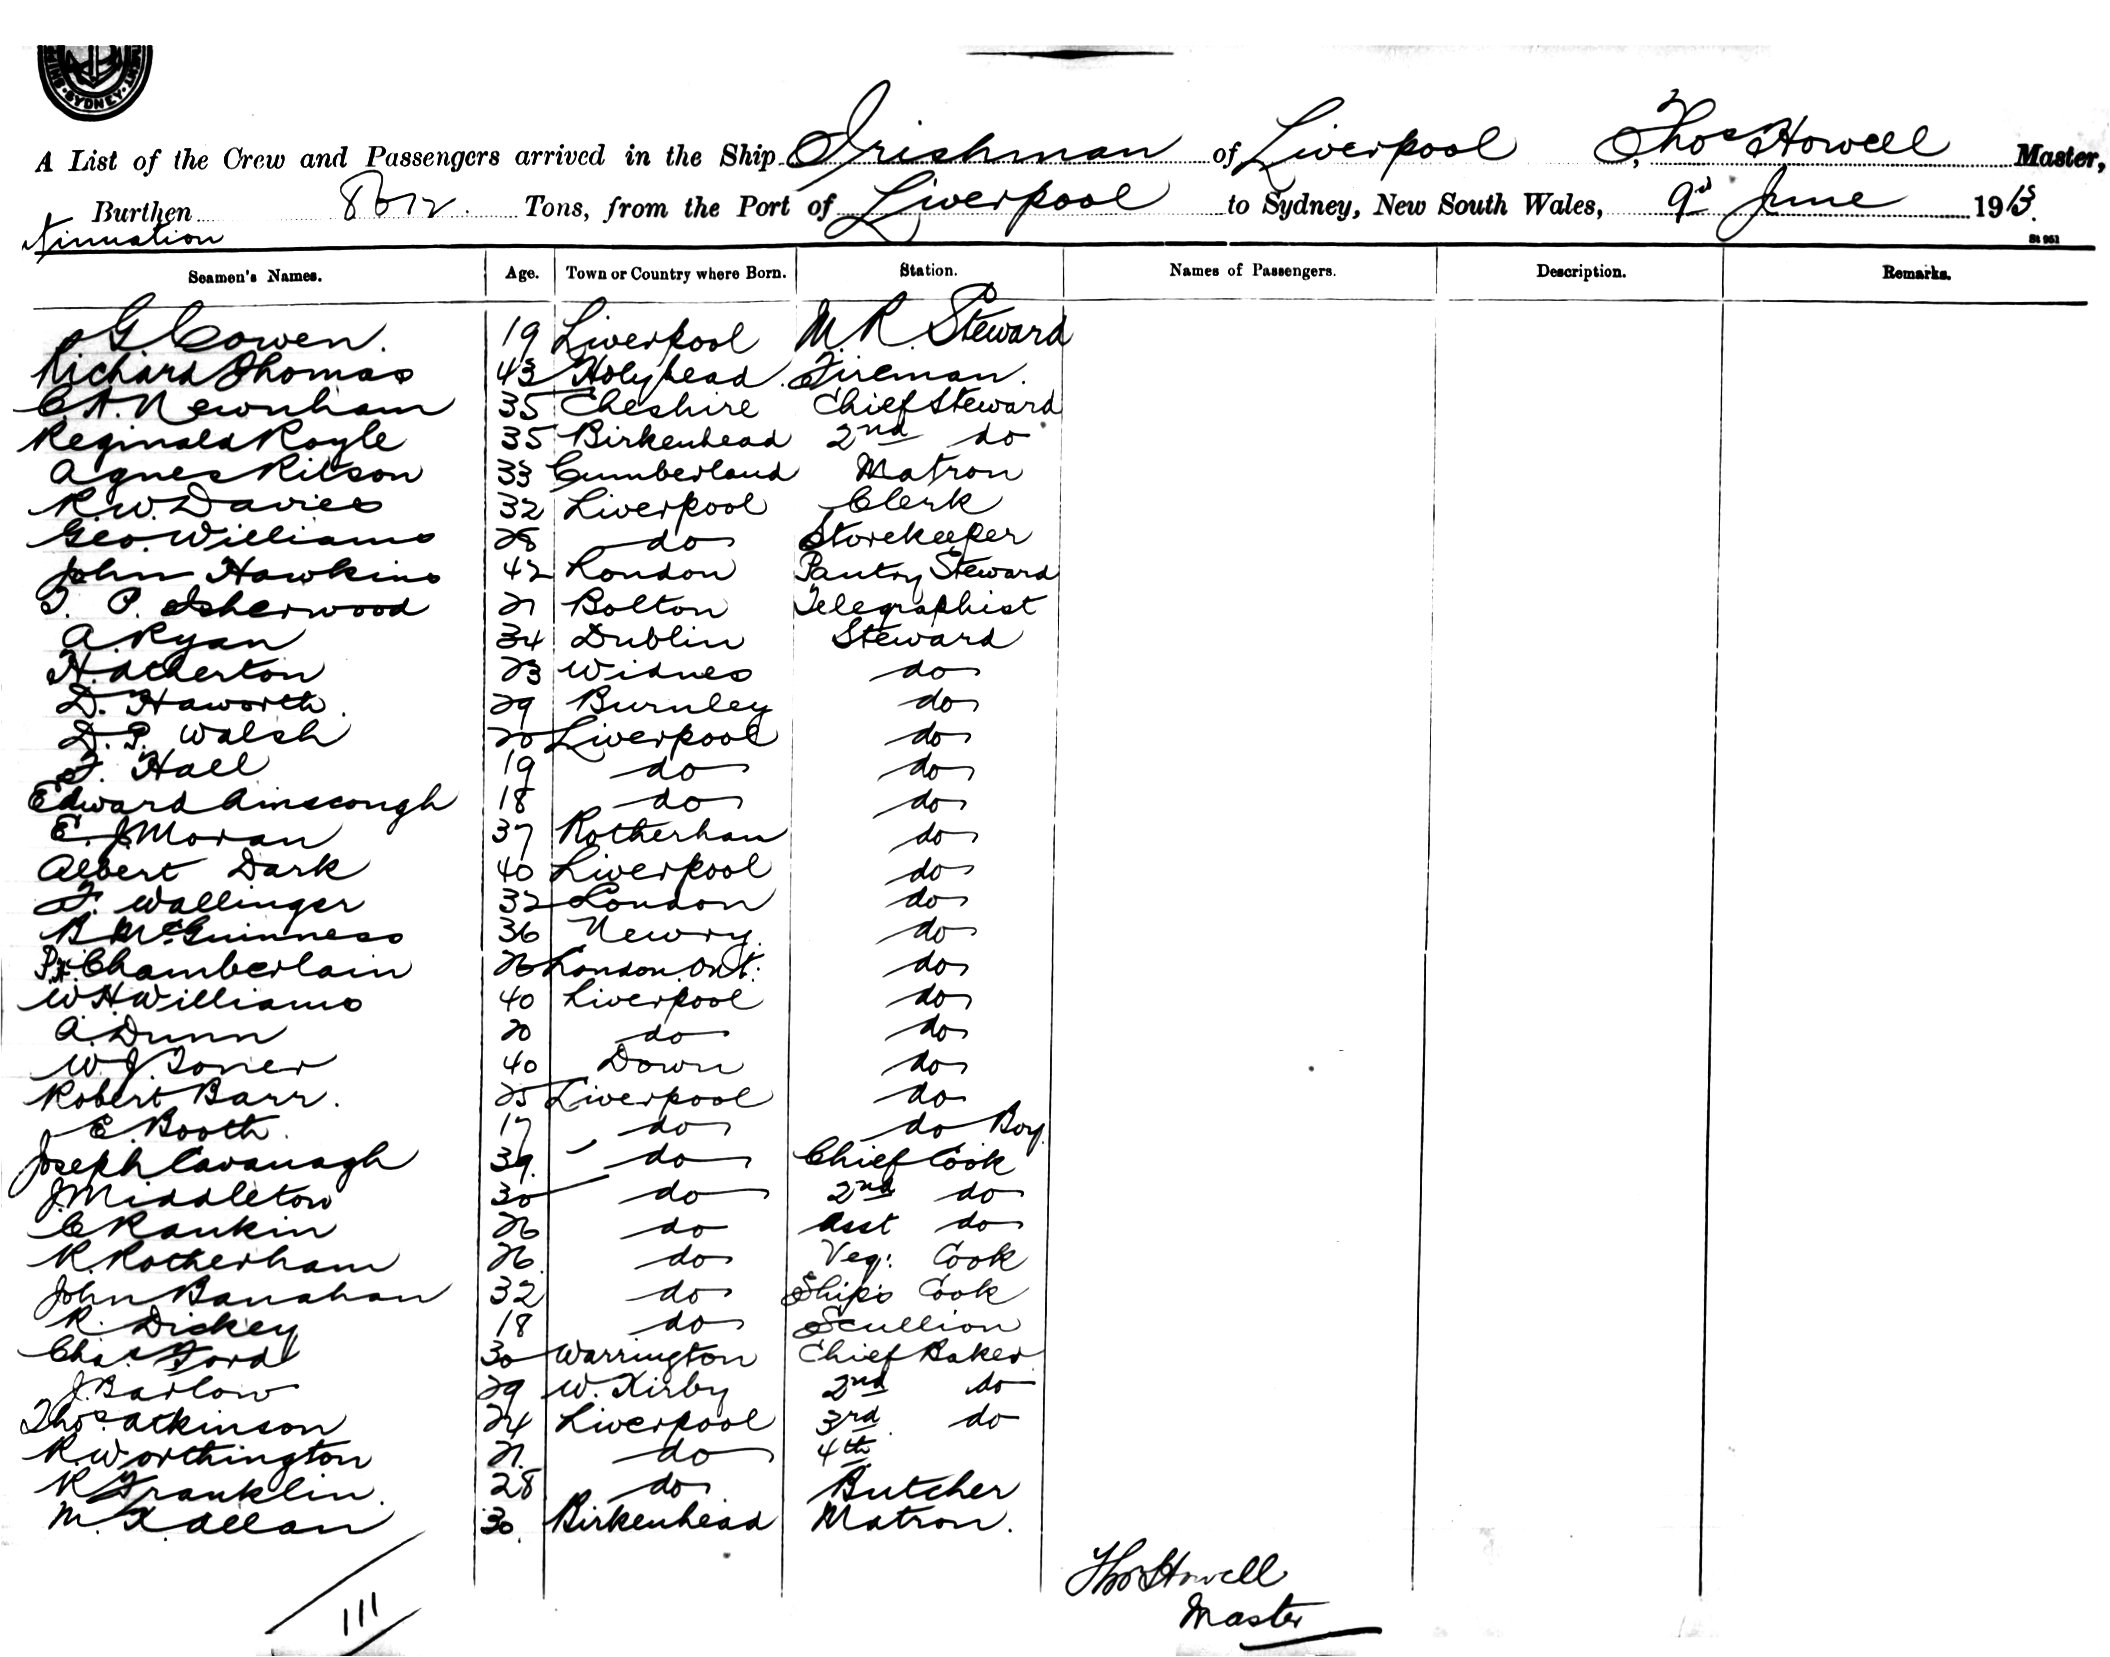 SYDNEY
A List of the Crew and Passengers arrived in the Ship Irishman of Liverpool, Thos Howell Master,
Burthen 8612 Tons, from the Port of Liverpool to Sydney, New South Wales, 9th June 1913.
ntinuation
St 961
Seamen's Names. Age. Town or Country where Born. Station. Names of Passengers. Description. Remarks.
G Cowen. 19 Liverpool M. R. Steward
Richard Thomas 43 Holyhead Fireman.
C. A. Newnham 35 Cheshire Chief Steward
Reginald Royle 35 Birkenhead 2nd do
Agnes Ritson 33 Cumberland Matron
R. W. Davies 32 Liverpool Clerk
Geo. Williams 28 do Storekeeper
John Hawkins 42 London Pantry Steward
T. P. Isherwood 21 Bolton Telegraphist
A. Ryan 34 Dublin Steward
H. Atherton 23 Widnes do
D. Haworth. 29 Burnley do
D. P. Walsh 20 Liverpool do
F. Hall 19 do do
Edward Ainscough 18 do do
E. J. Moran 37 Rotherham do
Albert Dark 40 Liverpool do
F. Wallinger 32 London do
B McGuinness 36 Newry. do
Chamberlain 26 London. Ont. do
W. H. Williams 40 Liverpool do
A. Dunn 20 do do
W. J. Toner 40 Down do
Robert Barr. 25 Liverpool do
E. Booth. 17 do do Boy.
Joseph Cavanagh 39. do Chief Cook
J. Middleton 30 do 2nd do
C Rankin 26 do Asst do
R. Rotherham 26 do Veg: Cook
John Banahan 32 do Ship's Cook
R. Dickey 18 do Scullion
Chas. Ford 30 Warrington Chief Baker
J. Barlow 29 W. Kirby 2nd do
Thos. Atkinson 24 Liverpool 3rd do
R. Worthington 21. do 4th
R Franklin. 28 do Butcher
M. K. Allan 30. Birkenhead Matron.
Thos Howell
Master
111